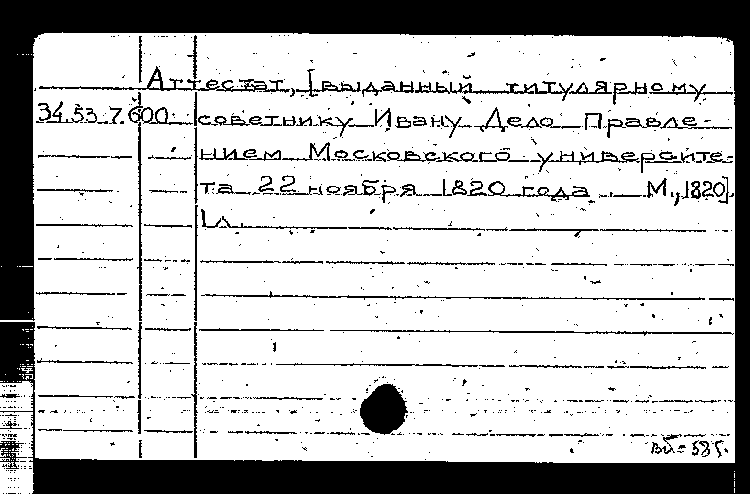 Аттестат, [выданный титулярному
34.53.7.600 советнику Ивану Дело Правле-
нием Московского университе-
та 22 ноября 1820 года. М., 1820].
1 л.
ВИ-585.